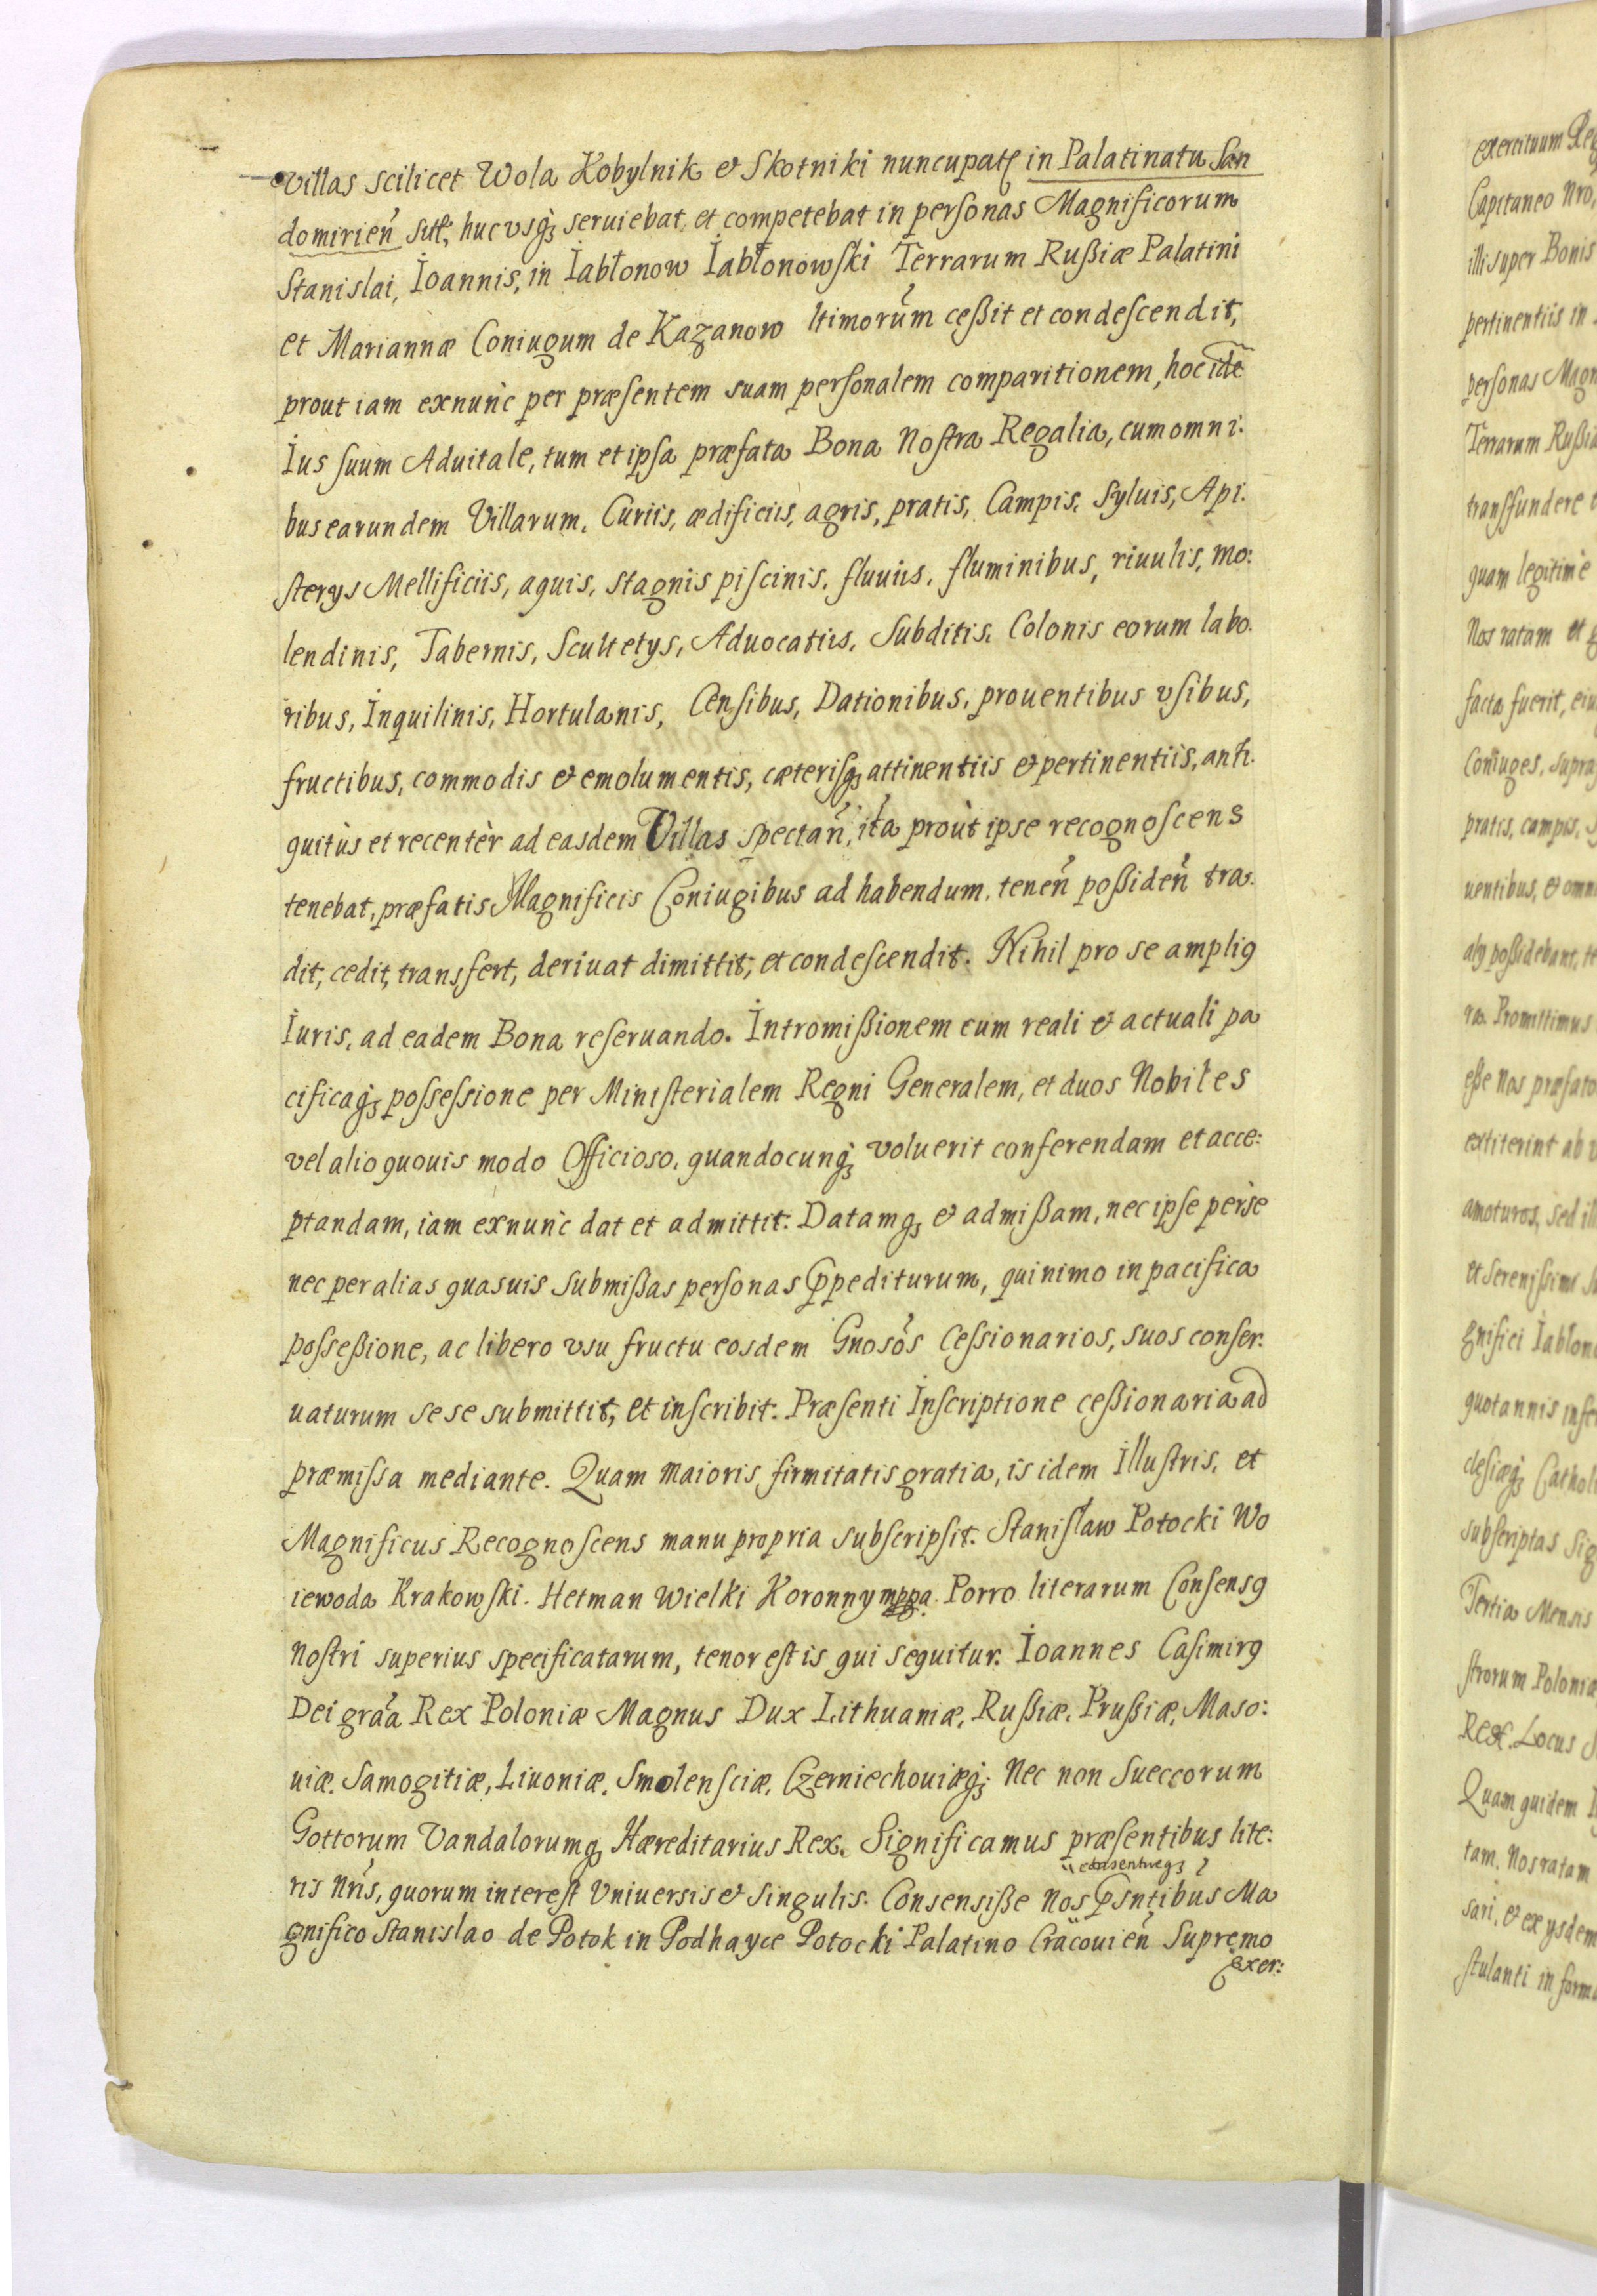 villas scilicet Wola Kobylnik & Skotniki nuncupat in Palatinatu San
domirien sitt, huc vsq seruiebat, et competebat in personas Magnificorum
Stanislai, Ioannis, in Iabłonow Iabłonowski Terrarum Rußiæ Palatini
et Mariannæ Coniugum de Kazanow ltimorum ceßit et condescendit,
prout iam exnunc per præsentem suam personalem comparitionem, hoc ide
Ius suum Aduitale, tum et ipsa præfata Bona Nostra Regalia, cum omni:
bus earundem Villarum, Curiis, ædificiis, agris, pratis, Campis, Syluis, Api:
sterys Mellificiis, aquis, stagnis piscinis, fluuiis, fluminibus, riuulis, mo:
lendinis, Tabernis, Scultetys, Aduocatiis, Subditis, Colonis eorum labo:
ribus, Inquilinis, Hortulanis, Censibus, Dationibus, prouentibus vsibus,
fructibus, commodis & emolumentis, cæterisq attinentiis & pertinentiis, anti:
quitùs et recentèr ad easdem Villas spectan, ita proùt ipse recognoscens
tenebat, præfatis Magnificis Coniugibus ad habendum, tenen poßiden tra:
dit, cedit, transfert, deriuat dimittit, et condescendit. Nihil pro se ampli9
Iuris, ad eadem Bona reseruando. Intromißionem cum reali & actuali pa
cificaq possessione per Ministerialem Regni Generalem, et duos Nobiles
vel alio quouis modo Officioso, quandocunq voluerit conferendam et acce:
ptandam, iam exnunc dat et admittit. Datamq & admißam, nec ipse perse
nec per alias quasuis submißas personas ꝓpediturum, quinimo in pacifica
posseßione, ac libero vsu fructu eosdem Gnosos Cessionarios, suos conser:
uaturum sese submittit, et inscribit. Præsenti Inscriptione ceßionaria ad
præmissa mediante. Quam maioris firmitatis gratia, is idem Illustris, et
Magnificus Recognoscens manu propria subscripsit. Stanisław Potocki Wo
iewoda Krakowski. Hetman Wielki Koronny mppa. Porro literarum Consens9
Nostri superius specificatarum, tenor est is qui sequitur. Ioannes Casimir9
Dei graa Rex Poloniæ Magnus Dux Lithuaniæ, Rußiæ, Prußiæ, Maso:
uiæ, Samogitiæ, Liuoniæ, Smolensciæ, Czerniechouiæq; Nec non Sueccorum
Gottorum Vandalorumq Hæreditarius Rex. Significamus præsentibus lite:
consentireq
ris Nris, quorum interest Vniuersis & Singulis. Consensiße Nos ꝓsntibus Ma
gnifico Stanislao de Potok in Podhayce Potocki Palatino Cracouien Supremo
Exer:
exercituum Reg
Capitaneo Nro,
illi super Bonis
pertinentiis in
personas Magn
Terrarum Rußiæ
transfundere
quam legitimè
Nos ratam et
facta fuerit, eiu
Coniuges, supra
pratis, campis, S
uentibus, & omn
aly poßidebant, te
ra. Promittimus
eße Nos præfato
extiterint ab v
amoturos, sed ill
et Serenißimi Su
gnifici Iabłono
quotannis infe
clesiæq Catholi
subscriptas Sig
Tertia Mensis
strorum Poloniæ
Rex. Locus S
Quam quidem I
tam, Nos ratam
sari, & ex ysdem
stulanti in forma